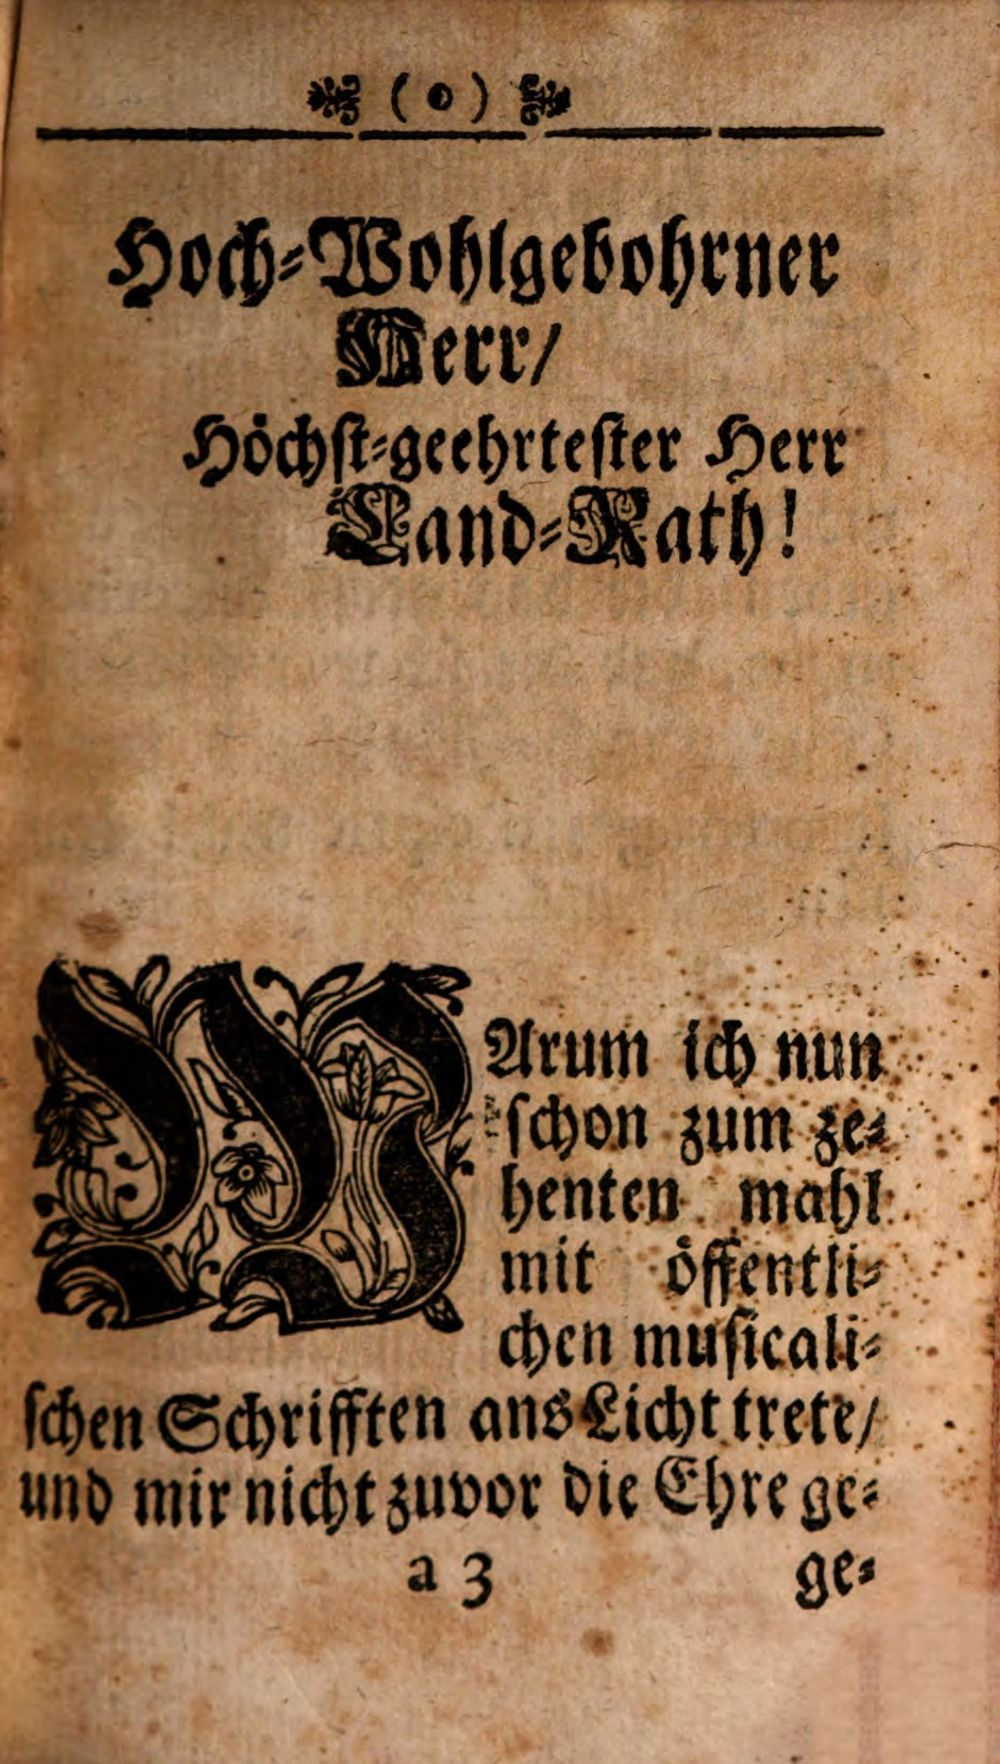 ( 0 )
Hoch-Wohlgebohrner
Herr/
Höchst-geehrtester Herr
Land-Rath!
WArum ich nun
schon zum ze-
henten mahl
mit öffentli-
chen musicali-
schen Schrifften ans Licht trete/
und mir nicht zuvor die Ehre ge-
a 3 ge-